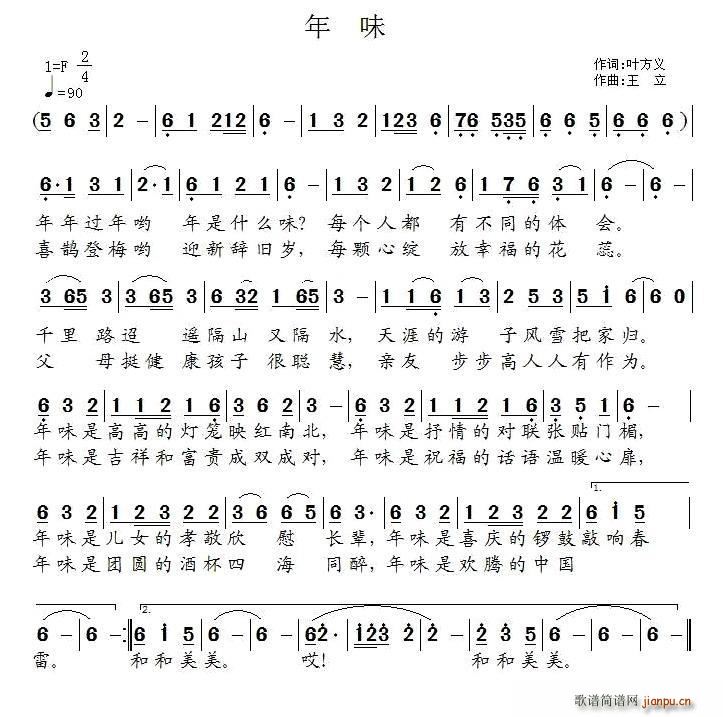 年 味
1=F 2/4
♩=90
作词:叶方义
作曲:王 立
(5 6 3 | 2 - | 6 1 212 | 6 - | 1 3 2 | 123 6 | 76 535 | 6 6 5 | 6 6 6 )
6· 1 3 1 | 2· 1 | 6 1 2 1 | 6 - | 1 3 2 | 1 2 6 | 1 7 6 3 1 | 6 - | 6 - |
年年过年哟 年是什么味? 每个人都 有不同的体 会。
喜鹊登梅哟 迎新辞旧岁, 每颗心绽 放幸福的花 蕊。
3 65 3 | 2 3 65 | 6 32 1 65 | 3 - | 1 1 6 1 3 | 2 5 3 | 5 i 6 | 6 0
千里 路迢 遥隔山 又隔 水, 天涯的游 子风雪把家归。
父 母挺健 康孩子 很聪 慧, 亲友 步步高人人有作为。
6 3 2 | 1 1 2 1 6 | 3 6 2 | 3 - | 6 3 2 | 1 1 2 1 6 | 3 5 1 | 6 - |
年味是高高的灯笼映红南北, 年味是抒情的对联张贴门楣,
年味是吉祥和富贵成双成对, 年味是祝福的话语温暖心扉,
6 3 2 | 1 2 3 2 | 3 6 6 5 | 6 3· | 6 3 2 | 1 2 3 2 | 1. 6 i 5
年味是儿女的孝敬欣 慰 长辈, 年味是喜庆的锣鼓敲响春
年味是团圆的酒杯四 海 同醉, 年味是欢腾的中国
6 - | 6 - :| 2. 6 i 5 | 6 - | 6 - | 62· | i23 2 | 2 - | 6 i 5 | 6 - | 6 - ||
雷。 和和美美。 哎! 和和美美。
歌谱简谱网
jianpu.cn